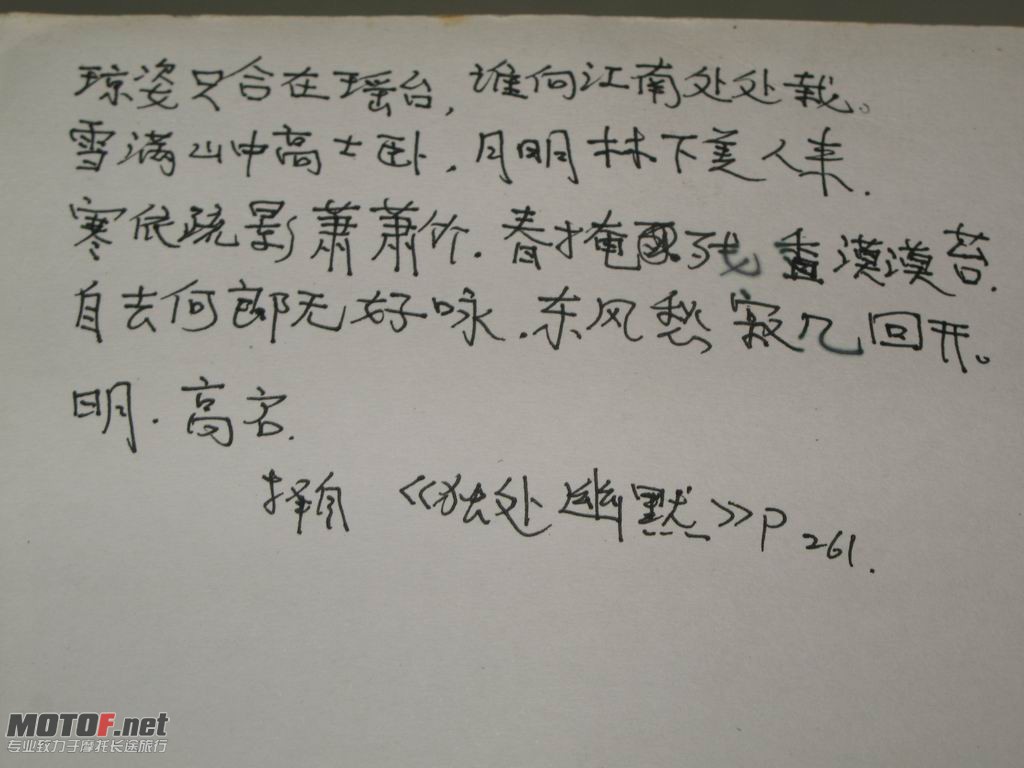 琼姿只合在瑶台，谁向江南处处栽。
雪满山中高士卧，月明林下美人来.
寒依疏影萧萧竹.春掩残香漠漠苔.
自去何郎无好咏.东风愁寂几回开。
明.高启.
择自《独处幽默》P261.
MOTOF.net
专业致力于摩托长途旅行